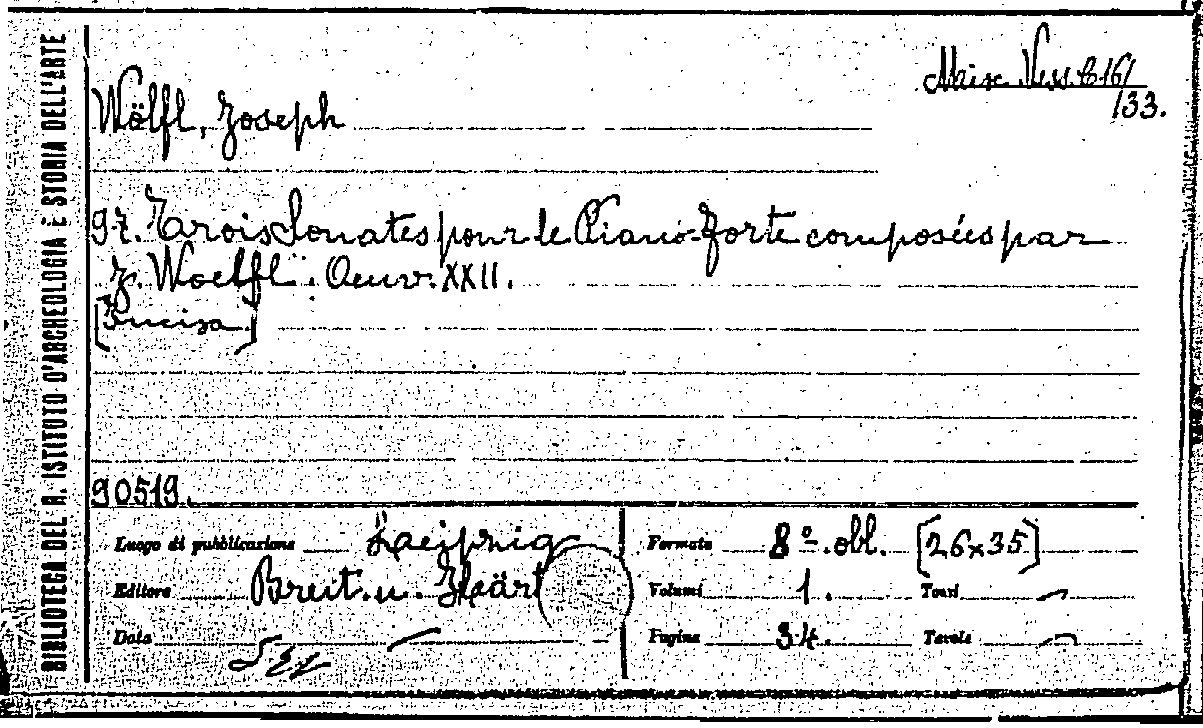 BIBLIOTECA DEL R. ISTITUTO D'ARCHEOLOGIA E STORIA DELL'ARTE
Misc. Vess. B. 16/
/33.
Wölfl, Joseph
97. Trois Sonates pour le Piano-Forte composées par
J. Woelfl. Oeuv. XXII.
[Incisa]
90519.
Luogo di pubblicazione Leipzig
Editore Breit. u. Härt
Data —
Formato 8º. obl. [26x35]
Volumi 1. Tomi —
Pagine 34. Tavole —